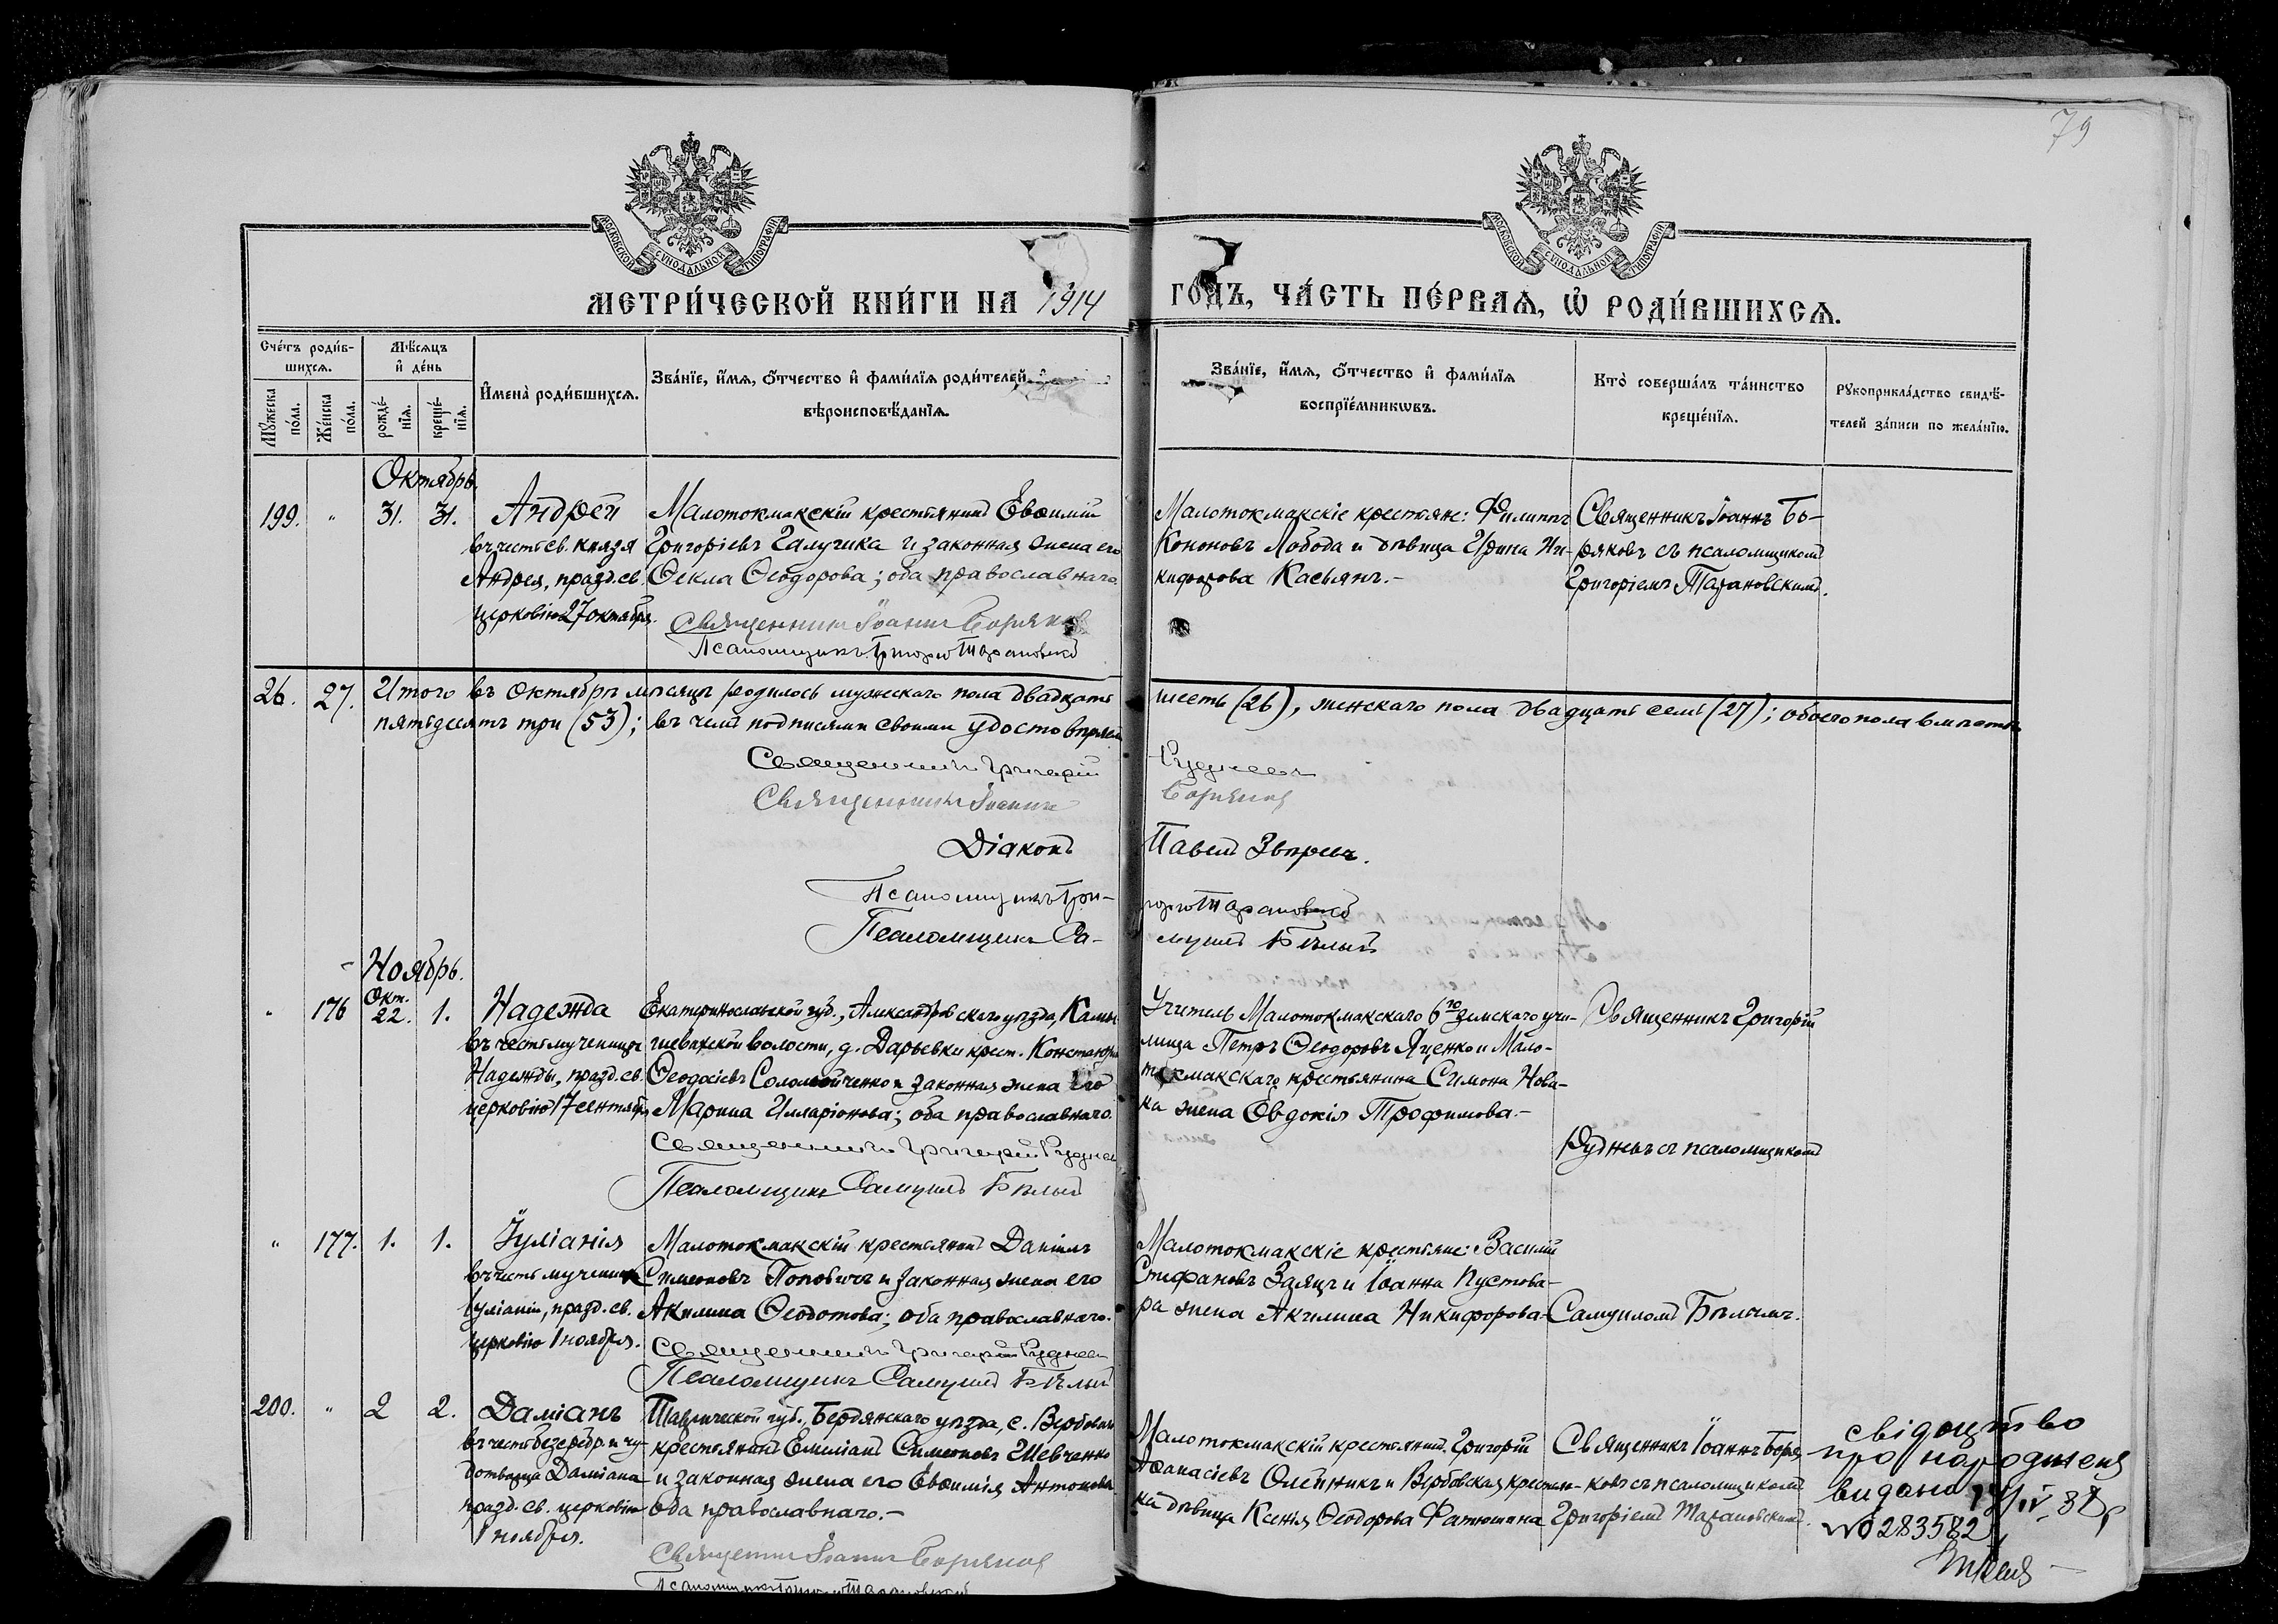 79
МОСКОВСКОЙ СѴНОДАЛЬНОЙ ТИПОГРАФІИ.
МОСКОВСКОЙ СѴНОДАЛЬНОЙ ТИПОГРАФІИ.
МЕТРИ́ЧЕСКОЙ КНИ́ГИ НА 1914 ГОДЪ, ЧА́СТЬ ПЕ́РВАѦ, Ѡ РОДИ́ВШИХСѦ.
Сче́тъ роди́в-
шихсѧ.
Мѣ́сѧцъ
и҆ де́нь
Мꙋжеска по́ла.
Же́нска по́ла.
рожде́-
нїѧ.
креще́-
нїѧ.
И҆мена̀ роди́вшихсѧ.
Зва́нїе, и҆́мѧ, ѻ҆́тчество и҆ фами́лїѧ роди́телей
вѣроисповѣ́данїѧ.
Зва́нїе, и҆́мѧ, ѻ҆́тчество и҆ фами́лїѧ
воспрїе́мникѡвъ.
Кто̀ соверша́лъ та́инство
креще́нїѧ.
Рꙋкоприкла́дство свидѣ́-
телей за́писи по жела́нїю.
Октябрь.
199. " 31. 31. Андрей
въ честь св. князя
Андрея, празд. св.
церковію 27 октября.
Малотокмакскій крестьянинъ Евѳимій
Григоріевъ Галушка и законная жена его
Ѳекла Ѳеодорова; оба православнаго.
Священникъ Іоаннъ Боряковъ
Псаломщикъ Григорій Тарановскій
Малотокмакскіе крестьяне: Филиппъ
Кононовъ Лобода и дѣвица Ирина Ни-
кифорова Касьянъ.-
Священникъ Іоаннъ Бо-
ряковъ съ псаломщикомъ
Григоріемъ Тарановскимъ.
26. 27. Итого въ октябрѣ мѣсяцѣ родилось мужескаго пола двадцать шесть (26), женскаго пола двадцать семь (27); обоего пола вмѣстѣ
пятьдесятъ три (53); въ чемъ подписями своими удостовѣряемъ
Священникъ Григорій Рудневъ
Священникъ Іоаннъ Боряковъ
Діаконъ Павелъ Звѣревъ.
Псаломщикъ Григорій Тарановскій
Псаломщикъ Самуилъ Бѣлый
Ноябрь.
" 176 Окт. 22. 1. Надежда
въ честь мученицы
Надежды, празд. св.
церковію 17 сентября
Екатеринославской губ., Александровскаго уѣзда, Камы-
шевахской волости, д. Дарьевки крест. Константинъ
Ѳеодосіевъ Соломойченко и законная жена его
Марина Илларіонова; оба православнаго.
Священникъ Григорій Рудневъ
Псаломщикъ Самуилъ Бѣлый
Учитель Малотокмакскаго 6го земскаго учи-
лища Петръ Ѳеодоровъ Яценко и Мало-
токмакскаго крестьянина Симона Нова-
ка жена Евдокія Трофимова.-
Священникъ Григорій
Рудневъ съ псаломщикомъ
" 177. 1. 1. Іуліанія
въ честь мученицы
Іуліаніи, празд. св.
церковію 1 ноября.
Малотокмакскій крестьянинъ Даніилъ
Симеоновъ Поповичъ и законная жена его
Акилина Ѳеодотова; оба православнаго.
Священникъ Григорій Рудневъ
Псаломщикъ Самуилъ Бѣлый
Малотокмакскіе крестьяне: Василій
Стефановъ Заяцъ и Іоанна Пустова-
ра жена Акилина Никифорова.
Самуиломъ Бѣлымъ.
200. " 2 2. Даміанъ
въ честь безсребр. и чу-
дотворца Даміана
празд. св. церковію
1 ноября.
Таврической губ., Бердянскаго уѣзда, с. Вербоваго
крестьянинъ Емиліанъ Симеоновъ Шевченко
и законная жена его Евѳимія Антонова
оба православнаго.-
Священникъ Іоаннъ Боряковъ
Псаломщикъ Григорій Тарановскій
Малотокмакскій крестьянинъ Григорій
Аѳанасіевъ Олейникъ и Вербовская крестьян-
ка дѣвица Ксенія Ѳеодорова Фатюшина
Священникъ Іоаннъ Боря-
ковъ съ псаломщикомъ
Григоріемъ Тарановскимъ.
свідоцтво
про народження
видано
№ 283582